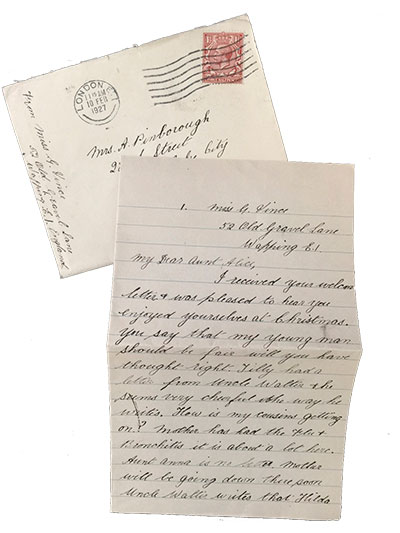 LONDON. E.1
11 15 AM
10 FEB
1927
Mrs. A. Pinborough
Street
City
From Miss G. Vince
52 Old Gravel Lane
Wapping E.1. England
1. Miss G. Vince
52 Old Gravel Lane
Wapping E1.
My Dear Aunt Alice,
I received your welcome
letter & was pleased to hear you
enjoyed yourselves at Christmas.
You say that my young man
should be fair will you have
thought right. Tilly had a
letter from Uncle Walter & he
seems very cheerful & the way he
writes. How is my cousins getting
on? Mother has had the Flu &
Bronchitis it is about a lot here.
Aunt Anna is no Mother
will be going down there soon
Uncle Walter writes that Hilda